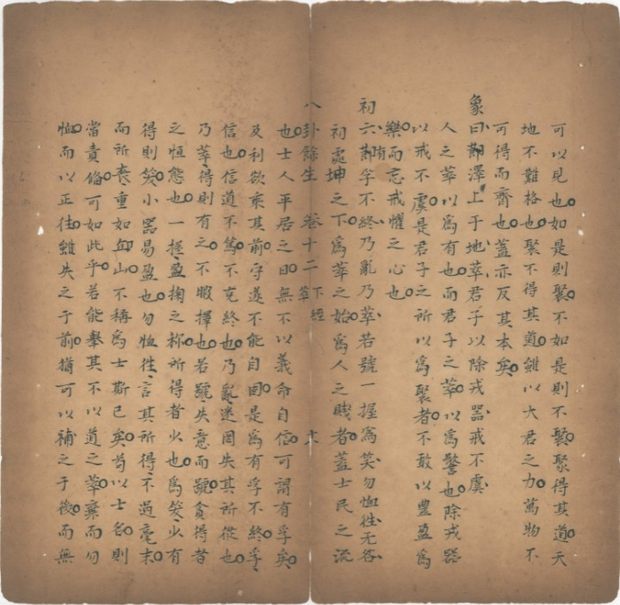 可以見也如是則聚不如是則不聚聚得其道天
地不難格也聚不得其道雖以大君之力萬物不
可得而齊也蓋亦反其本矣
象曰澤上于地萃君子以除戎器戒不虞
人之萃以為有也而君子之萃以為警也除戎器
以戒不虞是君子之所以為聚者不敢以豐盈為
樂而忘戒懼之心也
初六有孚不終乃亂乃萃若號一握為笑勿恤往无咎
初處坤之下為萃之始為人之賤者蓋士民之流
八卦餘生 卷十二 下經 萃 十
也士人平居之日無不以義命自信可謂有孚矣
及利欲乘其前守遂不能自固是為有孚不終孚
信也信道不篤不克終也乃亂迷罔失其所從也
乃萃得則有之不暇擇也若號失意而號貪得者
之恒態也一握盈掬之称所得者少也為笑少有
得則笑小器易盈也勿恤徃言其所得不過毫末
而所喪重如丘山不稱為士斯已矣苟以士名則
當責備可如此乎若能擊其不以道之萃棄而勿
恤而以正往雖失之于前猶可以補之于後而無